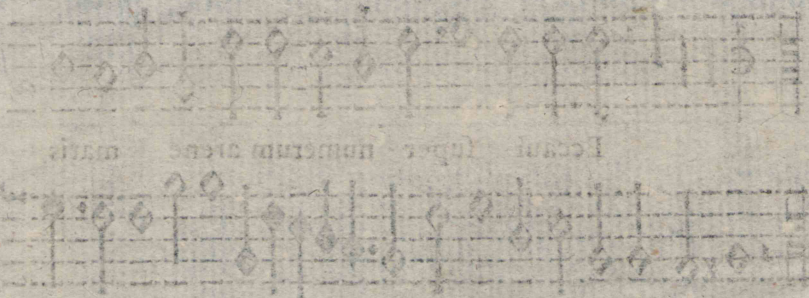 Peccaui super numerum arene maris